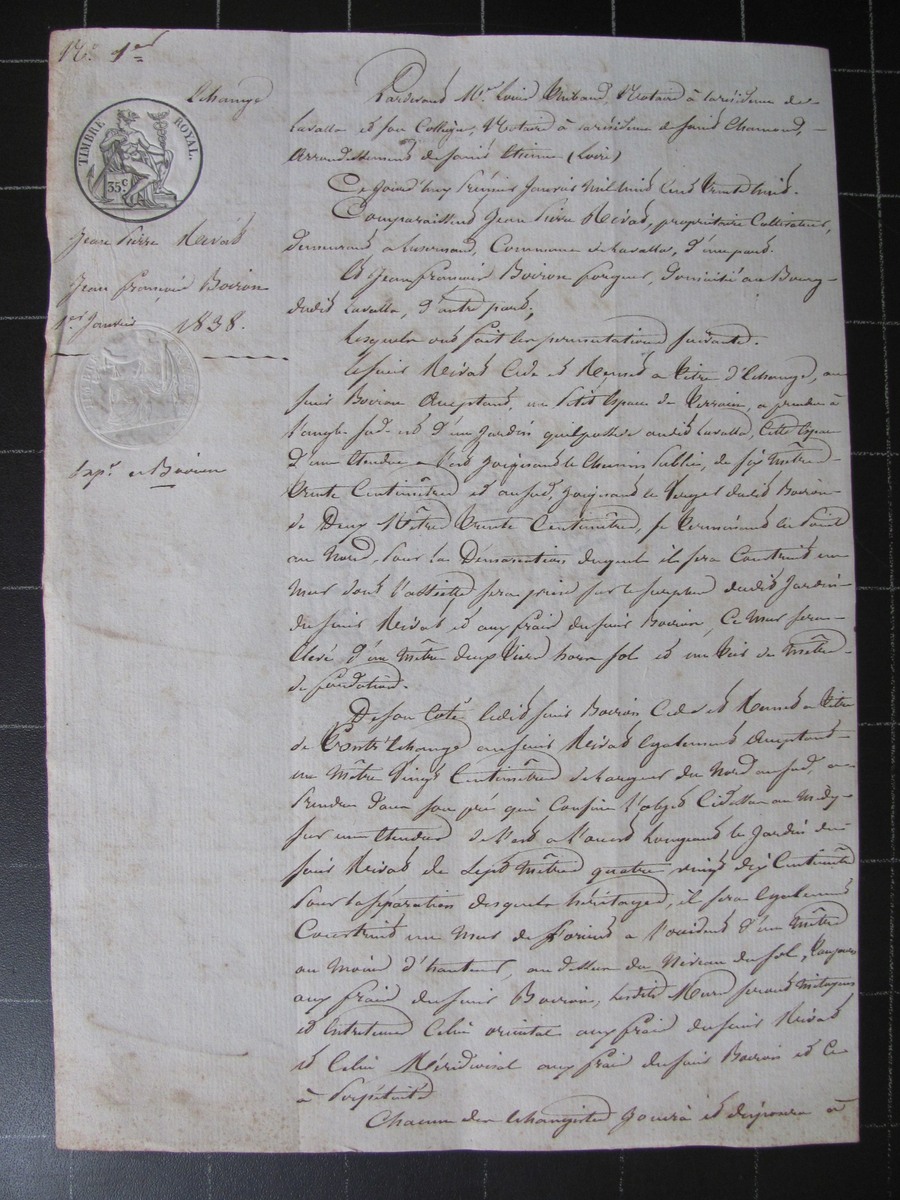 N.° 1er
Echange
TIMBRE ROYAL.
35c
Jean Pierre Rivat
Jean François Boiron
1er Janvier 1838.
Expn. a Boiron
Pardevant Me. Louis Thibaud, Notaire à la résidence de
Lavalla et son Collègue, Notaire à la résidence de Saint Chamond,
Arrondissement de Saint Etienne (Loire)
Ce jourd'huy Premier Janvier mil huit cent trente huit.
Comparaissent Jean Pierre Rivat, propriétaire Cultivateur,
demeurant a Luzernaud, Commune de Lavalla, d'une part.
Et Jean François Boiron forgeur, domicilié au Bourg
dudit Lavalla, d'autre part;
Lesquels ont fait les permutations suivantes.
Le sieur Rivat Cede et Remet a Titre d'Echange, au
sieur Boiron acceptant, un Petit Espace de Terrain, a prendre à
l'angle sud-est d'un Jardin qu'il possède audit Lavalla, Cette Espace
d'une Etendue a l'est joignant le Chemin Public, de six Mètres
Trente Centimètres et au sud, joignant le Verger dudit Boiron
de Deux Mètres Trente Centimètres, se Terminant en Point
au Nord, Pour la Démarcation duquel il sera Construit un
Mur dont l'assiette sera prise sur le surplus dudit Jardin
du sieur Rivat et aux frais du sieur Boiron, Ce Mur sera
Elevé d'un Mètre deux Tiers hors sol et un Tiers de Mètre
de fondation.
De son Coté ledit sieur Boiron Cede et Remet a Titre
de Contr'Echange au sieur Rivat également acceptant
un Mètre Vingt Centimètres de Largeur du Nord au sud, a
Prendre dans son pré qui Confine l'objet Cidessus au Midy
sur une Etendue de l'est a l'ouest longeant le Jardin du
sieur Rivat de Sept Mètres quatre vingt dix Centimètres
Pour la séparation desquels héritages, il sera Egalement
Construit un Mur de l'orient a l'occident d'un Mètre
au moins d'hauteur, au dessus du Niveau du sol, Toujours
aux frais du sieur Boiron, Lesdits Murs seront mitoyens
et Entretenus Celui oriental aux frais du sieur Rivat
et Celui Méridional aux frais du sieur Boiron et Ce
à Perpétuité
Chacun des Echangistes Jouira et disposera à